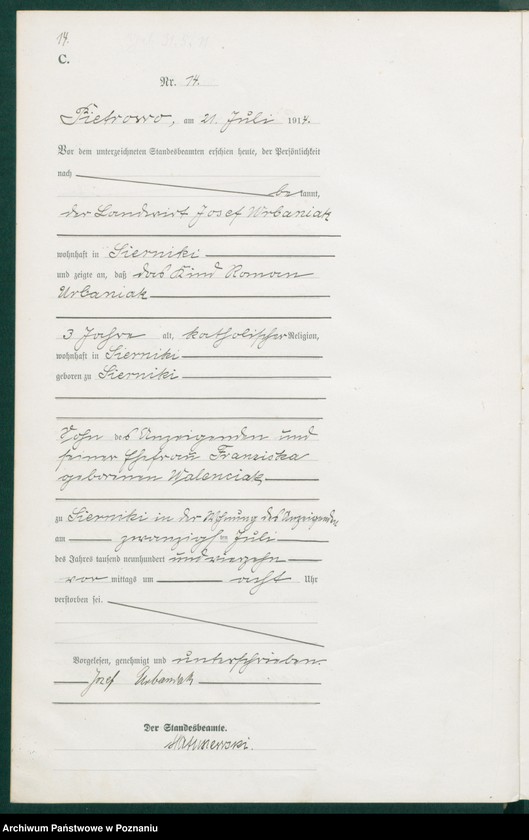 14.
C.
Nr. 14.
Pietrowo, am 21. Juli 1914.
Vor dem unterzeichneten Standesbeamten erschien heute, der Persönlichkeit
nach
bekannt,
der Landwirt Josef Urbaniak
wohnhaft in Sierniki
und zeigte an, daß das Kind Roman
Urbaniak
3 Jahre alt, katholischer Religion,
wohnhaft in Sierniki
geboren zu Sierniki
Sohn des Anzeigenden und
seiner Ehefrau Franziska
geborenen Walenciak
zu Sierniki in der Wohnung des Anzeigenden
am zwanzigsten Juli
des Jahres tausend neunhundert und vierzehn
vor mittags um acht Uhr
verstorben sei.
Vorgelesen, genehmigt und unterschrieben
Józef Urbaniak
Der Standesbeamte.
Archiwum Państwowe w Poznaniu